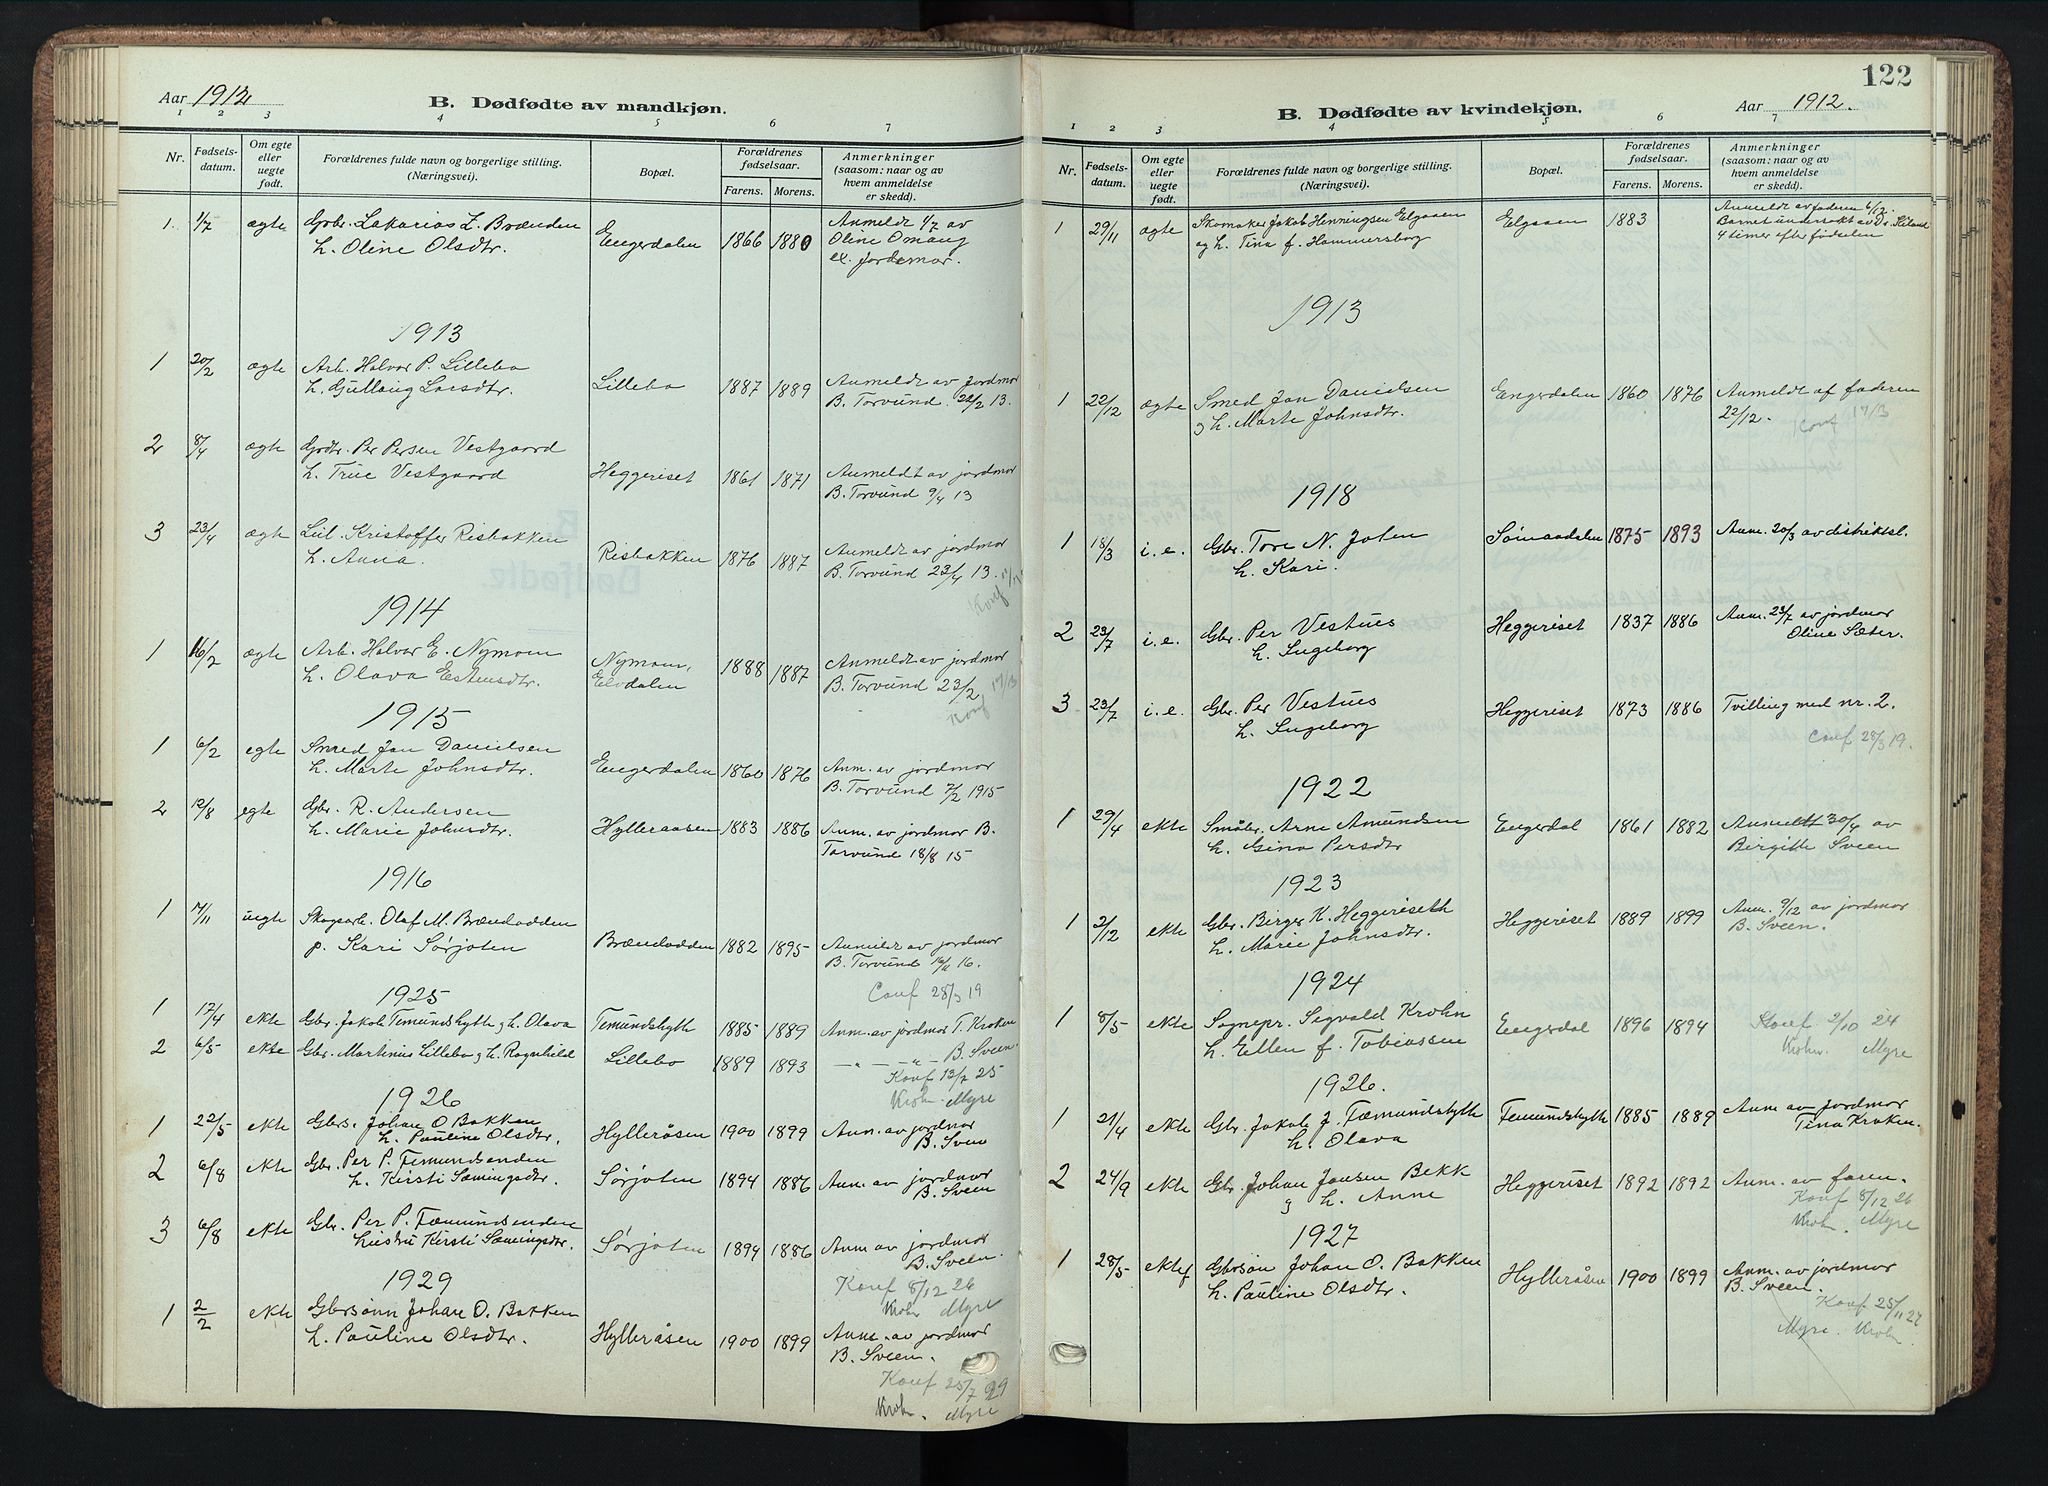 Aar 1912
B. Dødfødte av mandkjøn.
1 2 3 4 5 6 7
Nr. Fødsels-datum. Om egte eller uegte født. Forældrenes fulde navn og borgerlige stilling. (Næringsvei). Bopæl. Forældrenes fødselsaar. Farens. Morens. Anmerkninger (saasom: naar og av hvem anmeldelse er skedd).
1 1/7 ægte Gbr. Zakarias Z. Brænden Engerdalen 1866 1880 Anmeldt 1/7 av
h. Oline Olsdtr. Oline Omang
ex. jordemor.
1913
1 20/2 ægte Arb. Halvor P. Lillebo Lillebo 1887 1889 Anmeldt av jordmor
h. Gjullaug Larsdtr. B. Torvund 22/2 13.
2 8/4 ægte Per Persen Vestgaard Heggeriset 1861 1871 Anmeldt av jordmor
h. True Vestgaard B. Torvund 9/4 13
3 23/4 ægte Kristoffer Risbakken Risbakken 1876 1887 Anmeldt av jordmor
h. Anna. B. Torvund 23/4 13.
Konf
1914
1 16/2 ægte Arb. Halvor E. Nymoen Nymoen, 1888 1887 Anmeldt av jordmor
h. Olava Estensdtr. Elvdalen B. Torvund 23/2
Konf 17/3
1915
1 6/2 egte Smed Jan Danielsen Engerdalen 1860 1876 Anm. av jordmor
h. Marte Johnsdtr. B. Torvund 7/2 1915
2 12/8 egte Gbr. R. Andersen Hylleraasen 1883 1886 Anm. av jordmor B.
h. Marie Johnsdtr. Torvund 18/8 15
1916
1 14/11 uegte Skogsarb. Olaf M. Brændodden Brændodden 1882 1895 Anmeldt av jordmor
p. Kari Sørjoten B. Torvund 16/11 16.
Conf 28/3 19
1925
1 17/4 ekte Gbr. Jakob Femundshytte & h. Olava Femundshytte 1885 1889 Anm. av jordmor T. Kroken
2 6/5 ekte Gbr. Martinius Lillebo & h. Ragnhild Lillebo 1889 1893 — " — " — B. Sveen.
Konf 13/7 25
Krohn Myre
1926
1 22/5 ekte Gbrs. Johan O Bakken Hylleråsen 1900 1899 Anm. av jordmor
h. Pauline Olsdtr. B. Sveen
2 6/8 ekte Gbr. Per P. Femundsenden Sørjoten 1894 1886 Anm. av jordmor
h. Kirsti Sæmingsdtr. B. Sveen
3 6/8 ekte Gbr. Per P. Fæmundsenden Sørjoten 1894 1886 Anm av jordmor
hustru Kirsti Sæmingsdtr. B. Sveen.
Konf 8/12 26
Krohn Myre
1929
1 2/2 ekte Gbrsønn Johan O. Bakken Hylleråsen 1900 1899 Anm. av jordmor
h. Pauline Olsdtr. B. Sveen.
Konf 25/7 29
Krohn. Myre
122
B. Dødfødte av kvindekjøn.
Aar 1912.
1 2 3 4 5 6 7
Nr. Fødsels-datum. Om egte eller uegte født. Forældrenes fulde navn og borgerlige stilling. (Næringsvei). Bopæl. Forældrenes fødselsaar. Farens. Morens. Anmerkninger (saasom: naar og av hvem anmeldelse er skedd).
1 29/11 ægte Skomaker Jakob Henningsen Elgaaen Elgaaen 1883 Anmeldt av faderen 6/12.
og h. Tina f. Hammersborg Barnet undersøkt av Dr. Kiland
4 timer efter fødselen
1913
1 22/12 ægte Smed Jan Danielsen Engerdalen 1860 1876 Anmeldt af faderen
& h. Marte Johnsdtr. 22/12.
Konf 17/3
1918
1 18/3 i.e. Gbr. Tore N. Joten Sømaadalen 1875 1893 Anm. 20/3 av distriktsl.
h. Kari.
2 23/7 i.e. Gbr. Per Vestues Heggeriset 1837 1886 Anm. 23/7 av jordmor
h. Ingeborg Oline Sæter.
3 23/7 i.e. Gbr. Per Vestues Heggeriset 1873 1886 Tvilling med nr. 2.
h. Ingeborg
Conf 28/3 19.
1922
1 29/4 ekte Småbr. Arne Amundsen Engerdal 1861 1882 Anmeldt 30/4 av
h. Gina Persdtr Birgitte Sveen
1923
1 2/12 ekte Gbr. Birger K. Heggeriseth Heggeriset 1889 1899 Anm. 9/12 av jordmor
h. Marie Johnsdtr. B. Sveen.
1924
1 8/5 ekte Sognepr. Sigvald Krohn Engerdal 1896 1894 Konf 2/10 24
h. Ellen f. Tobiassen Krohn. Myre
1926.
1 21/4 ekte Gbr. Jakob J. Fæmundshytte Femundshytte 1885 1889 Anm av jordmor
h. Olava Tina Kroken.
2 24/9 ekte Gbr. Johan Jansen Bekk Heggeriset 1892 1892 Anm. av faren.
& h. Anne Konf 8/12 26
Krohn Myre
1927
1 28/5 ektef Gbrsøn Johan O. Bakken Hylleråsen 1900 1899 Anm. av jordmor
h. Pauline Olsdtr. B. Sveen.
Konf 25/11 27
Myre. Krohn